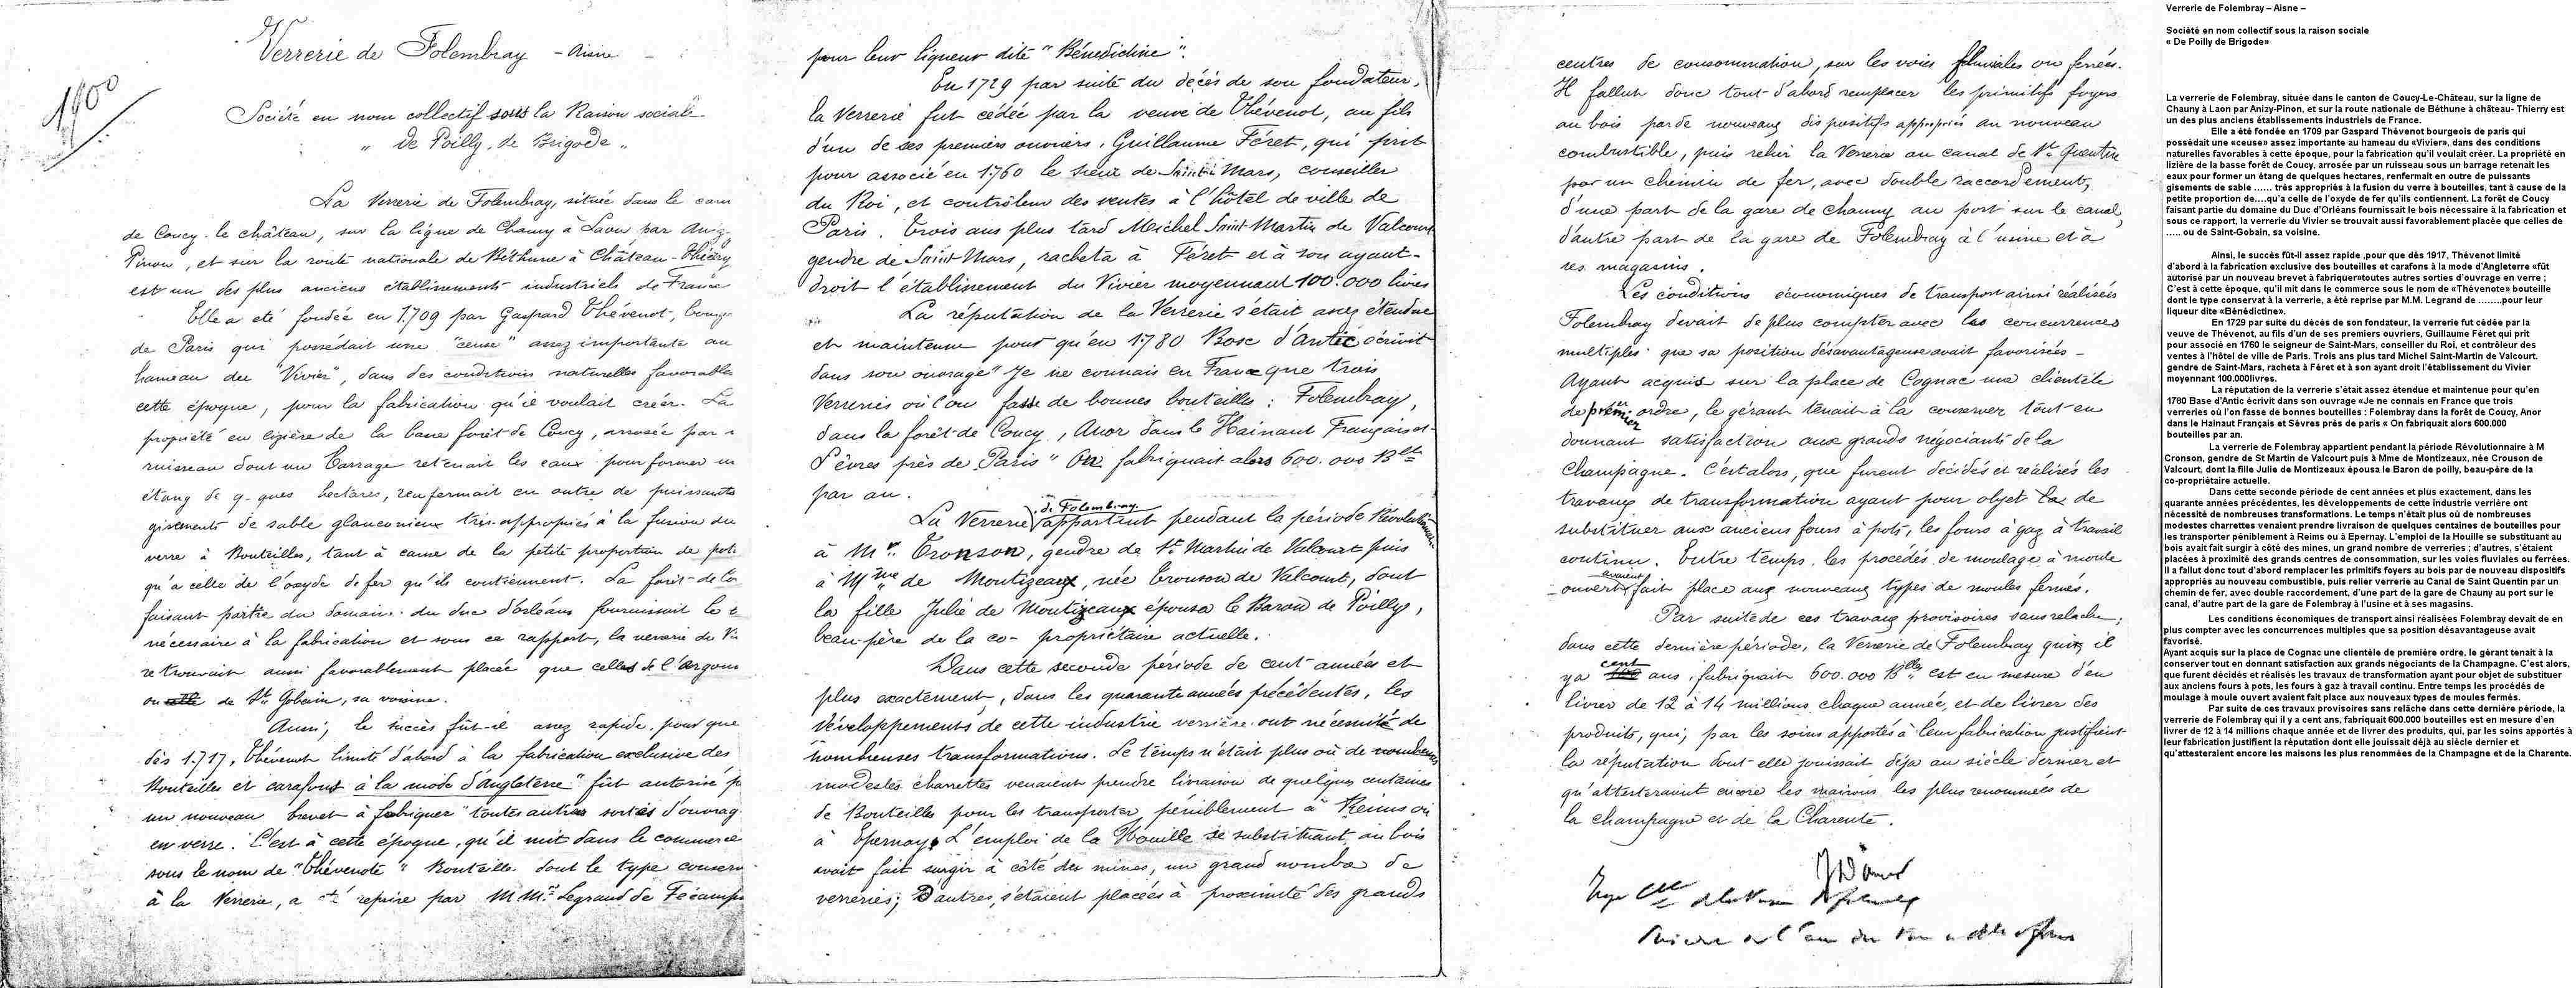 Verrerie de Folembray - Aisne -
1900
Société en nom collectif sous la Raison sociale
" De Poilly, de Brigode "
La Verrerie de Folembray, située dans le can
de Coucy-le-château, sur la ligne de Chauny à Laon par Aniz
Pinon, et sur la route nationale de Béthune à Château-Thierry
est un des plus anciens établissements industriels de France
Elle a été fondée en 1709 par Gaspard Thévenot, bourg
de Paris qui possédait une "cense" assez importante au
hameau du "Vivier", dans des conditions naturelles favorables
cette époque, pour la fabrication qu'il voulait créer. La
propriété en lizière de la basse forêt de Coucy, arrosée par
ruisseau dont un barrage retenait les eaux pour former un
étang de q-ques hectares, renfermait en outre de puissants
gisements de sable glauconieux très appropriés à la fusion du
verre à Bouteilles, tant à cause de la petite proportion de pot
qu'a celle de l'oxyde de fer qu'ils contiennent. La forêt de Co
faisant partie du domaine du duc d'orléans fournissait le
nécessaire à la fabrication et sous ce rapport, la verrerie du Vi
se trouvait aussi favorablement placée que celles de l'Argonn
ou celle de St Gobain, sa voisine.
Aussi, le succès fût-il assez rapide, pour que
dès 1717, Thévenot limité d'abord à la fabrication exclusive des
Bouteilles et carafons à la mode d'Angleterre" fût autorisé p
un nouveau brevet à fabriquer "toutes autres sortes d'ouvrag
en verre. C'est à cette époque, qu'il mit dans le commerce
sous le nom de "Thévenote" Bouteille dont le type conserv
à la Verrerie, a été reprise par M Mrs Legrand de Fécamp
pour leur liqueur dite "Bénédictine".
En 1729 par suite du décès de son fondateur,
la Verrerie fut cédée par la veuve de Thévenot, au fils
d'un de ses premiers ouvriers, Guillaume Féret, qui prit
pour associé en 1760 le sieur de Saint Mars, conseiller
du Roi, et contrôleur des ventes à l'hôtel de ville de
Paris. Trois ans plus tard Meichel Saint Martin de Valcourt
gendre de Saint Mars, racheta à Féret et à son ayant-
droit l'établissement du Vivier moyennant 100.000 livres
La réputation de la Verrerie s'était assez étendue
et maintenue pour qu'en 1780 Bosc d'Antic écrivit
dans son ouvrage "Je ne connais en France que trois
Verreries où l'on fasse de bonnes bouteilles : Folembray,
dans la forêt de Coucy, Anor dans le Hainaut Français et
Sèvres près de Paris" On fabriquait alors 600.000 Blles
par an.
La Verrerie de Folembray appartint pendant la période Révolutionnaire
à Mr Cronson, gendre de St Martin de Valcourt puis
à Mme de Montizeaux, née Cronson de Valcourt, dont
la fille Julie de Montizeaux épousa le Baron de Poilly,
beau-père de la co-propriétaire actuelle.
Dans cette seconde période de cent années et
plus exactement, dans les quarante années précédentes, les
développements de cette industrie verrière ont nécessité de
nombreuses transformations. Le temps n'était plus où de nombreuses
modestes charrettes venaient prendre livraison de quelques centaines
de Bouteilles pour les transporter péniblement à Reims ou
à Epernay. L'emploi de la Houille se substituant au bois
avait fait surgir à côté des mines, un grand nombre de
verreries; D'autres, s'étaient placées à proximité des grands
centres de consommation, sur les voies fluviales ou ferrées.
Il fallut donc tout d'abord remplacer les primitifs foyers
au bois par de nouveaux dispositifs appropriés au nouveau
combustible, puis relier la Verrerie au canal de St Quentin
par un chemin de fer, avec double raccordement,
d'une part de la gare de Chauny au port sur le canal,
d'autre part de la gare de Folembray à l'usine et à
ses magasins.
Les conditions économiques de transport ainsi réalisées
Folembray devait de plus compter avec les concurrences
multiples que sa position désavantageuse avait favorisées -
Ayant acquis sur la place de Cognac une clientèle
de premier ordre, le gérant tenait à la conserver tout en
donnant satisfaction aux grands négociants de la
Champagne. C'est alors, que furent décidés et réalisés les
travaux de transformation ayant pour objet de
substituer aux anciens fours à pots, les fours à gaz à travail
continu. Entre temps, les procédés de moulage à moule
ouvert avaient fait place aux nouveaux types de moules fermés.
Par suite de ces travaux provisoires sans relâche,
dans cette dernière période, la Verrerie de Folembray qui, il
y a cent ans, fabriquait 600.000 Blles est en mesure d'en
livrer de 12 à 14 millions chaque année, et de livrer des
produits, qui, par les soins apportés à leur fabrication justifient
la réputation dont elle jouissait déja au siècle dernier et
qu'attesteraient encore les maisons les plus renommées de
la champagne et de la Charente.
Verrerie de Folembray – Aisne –
Société en nom collectif sous la raison sociale
« De Poilly de Brigode»
La verrerie de Folembray, située dans le canton de Coucy-Le-Château, sur la ligne de
Chauny à Laon par Anizy-Pinon, et sur la route nationale de Béthune à château- Thierry est
un des plus anciens établissements industriels de France.
Elle a été fondée en 1709 par Gaspard Thévenot bourgeois de paris qui
possédait une «ceuse» assez importante au hameau du «Vivier», dans des conditions
naturelles favorables à cette époque, pour la fabrication qu'il voulait créer. La propriété en
lizière de la basse forêt de Coucy, arrosée par un ruisseau sous un barrage retenait les
eaux pour former un étang de quelques hectares, renfermait en outre de puissants
gisements de sable …… très appropriés à la fusion du verre à bouteilles, tant à cause de la
petite proportion de….qu'a celle de l'oxyde de fer qu'ils contiennent. La forêt de Coucy
faisant partie du domaine du Duc d'Orléans fournissait le bois nécessaire à la fabrication et
sous ce rapport, la verrerie du Vivier se trouvait aussi favorablement placée que celles de
….. ou de Saint-Gobain, sa voisine.
Ainsi, le succès fût-il assez rapide ,pour que dès 1917, Thévenot limité
d'abord à la fabrication exclusive des bouteilles et carafons à la mode d'Angleterre «fût
autorisé par un nouveau brevet à fabriquertoutes autres sorties d'ouvrage en verre ;
C'est à cette époque, qu'il mit dans le commerce sous le nom de «Thévenote» bouteille
dont le type conservat à la verrerie, a été reprise par M.M. Legrand de ……..pour leur
liqueur dite «Bénèdictine».
En 1729 par suite du décès de son fondateur, la verrerie fut cédée par la
veuve de Thévenot, au fils d'un de ses premiers ouvriers, Guillaume Féret qui prit
pour associé en 1760 le seigneur de Saint-Mars, conseiller du Roi, et contrôleur des
ventes à l'hôtel de ville de Paris. Trois ans plus tard Michel Saint-Martin de Valcourt.
gendre de Saint-Mars, racheta à Féret et à son ayant droit l'établissement du Vivier
moyennant 100.000livres.
La réputation de la verrerie s'était assez étendue et maintenue pour qu'en
1780 Base d'Antic écrivit dans son ouvrage «Je ne connais en France que trois
verreries où l'on fasse de bonnes bouteilles : Folembray dans la forêt de Coucy, Anor
dans le Hainaut Français et Sèvres prés de paris « On fabriquait alors 600.000
bouteilles par an.
La verrerie de Folembray appartient pendant la période Révolutionnaire à M
Cronson, gendre de St Martin de Valcourt puis à Mme de Montizeaux, née Crouson de
Valcourt, dont la fille Julie de Montizeaux épousa le Baron de poilly, beau-père de la
co-propriétaire actuelle.
Dans cette seconde période de cent années et plus exactement, dans les
quarante années précédentes, les développements de cette industrie verrière ont
nécessité de nombreuses transformations. Le temps n'était plus où de nombreuses
modestes charrettes venaient prendre livraison de quelques centaines de bouteilles pour
les transporter péniblement à Reims ou à Epernay. L'emploi de la Houille se substituant au
bois avait fait surgir à côté des mines, un grand nombre de verreries ; d'autres, s'étaient
placées à proximité des grands centres de consommation, sur les voies fluviales ou ferrées.
Il a fallut donc tout d'abord remplacer les primitifs foyers au bois par de nouveau dispositifs
appropriés au nouveau combustible, puis relier verrerie au Canal de Saint Quentin par un
chemin de fer, avec double raccordement, d'une part de la gare de Chauny au port sur le
canal, d'autre part de la gare de Folembray à l'usine et à ses magasins.
Les conditions économiques de transport ainsi réalisées Folembray devait de en
plus compter avec les concurrences multiples que sa position désavantageuse avait
favorisé.
Ayant acquis sur la place de Cognac une clientèle de première ordre, le gérant tenait à la
conserver tout en donnant satisfaction aux grands négociants de la Champagne. C'est alors,
que furent décidés et réalisés les travaux de transformation ayant pour objet de substituer
aux anciens fours à pots, les fours à gaz à travail continu. Entre temps les procédés de
moulage à moule ouvert avaient fait place aux nouveaux types de moules fermés.
Par suite de ces travaux provisoires sans relâche dans cette dernière période, la
verrerie de Folembray qui il y a cent ans, fabriquait 600.000 bouteilles est en mesure d'en
livrer de 12 à 14 millions chaque année et de livrer des produits, qui, par les soins apportés à
leur fabrication justifient la réputation dont elle jouissait déjà au siècle dernier et
qu'attesteraient encore les maisons les plus renommées de la Champagne et de la Charente.